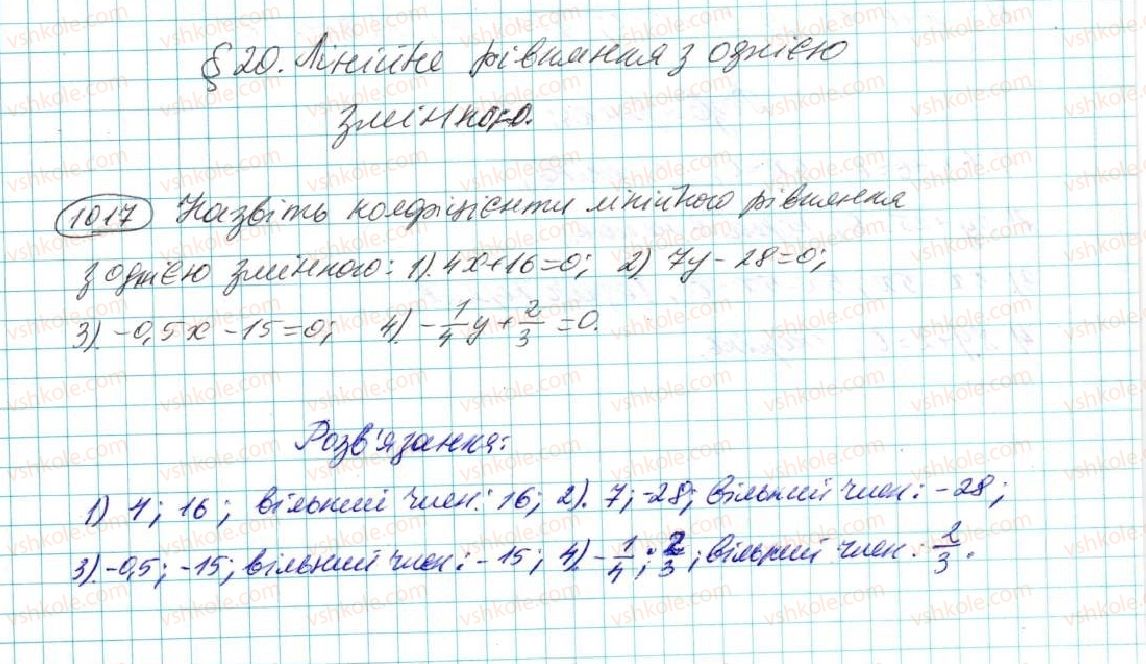 § 20. Лінійне рівняння з однією
змінною.
1017 Назвіть коефіцієнти лінійного рівняння
з однією змінною: 1). 4x+16=0; 2) 7y-28=0;
3). -0,5x-15=0; 4). -1/4y+2/3=0.
Розв'язання:
1) 4; 16; вільний член: 16; 2). 7; -28; вільний член: -28;
3). -0,5; -15; вільний член: -15; 4). -1/4; 2/3; вільний член: 2/3.
vshkole.com